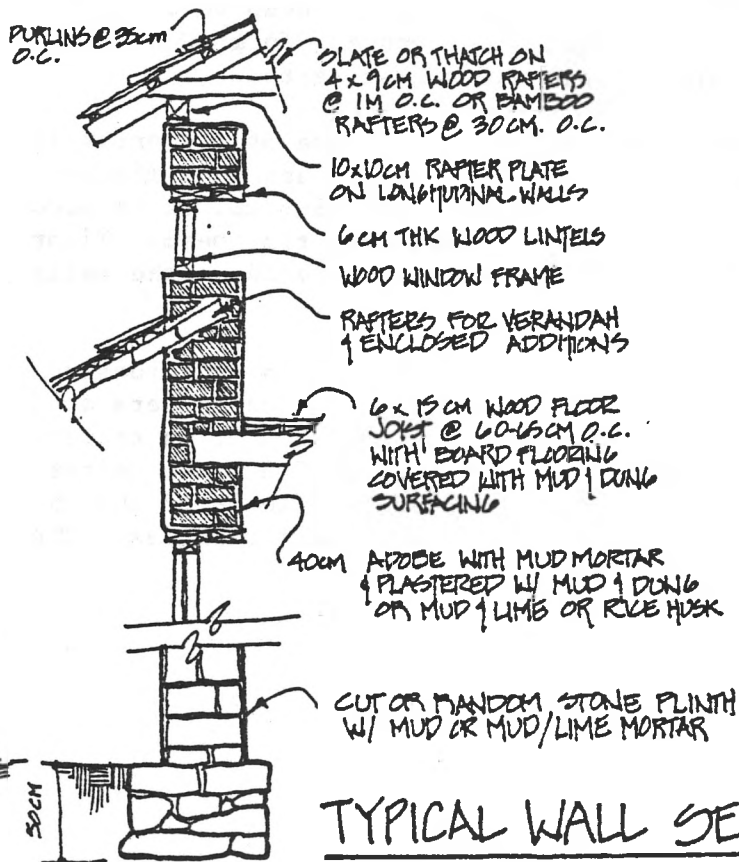 PURLINS @ 35cm
O.C.
SLATE OR THATCH ON
4 x 9CM WOOD RAFTERS
@ 1M O.C. OR BAMBOO
RAFTERS @ 30CM. O.C.
10x10CM RAFTER PLATE
ON LONGITUDINAL WALLS
6CM THK WOOD LINTELS
WOOD WINDOW FRAME
RAFTERS FOR VERANDAH
& ENCLOSED ADDITIONS
6 x 15CM WOOD FLOOR
JOIST @ 60-65CM O.C.
WITH BOARD FLOORING
COVERED WITH MUD & DUNG
SURFACING
40CM ADOBE WITH MUD MORTAR
& PLASTERED W/ MUD & DUNG
OR MUD & LIME OR RICE HUSK
CUT OR RANDOM STONE PLINTH
W/ MUD OR MUD/LIME MORTAR
50CM
TYPICAL WALL SE